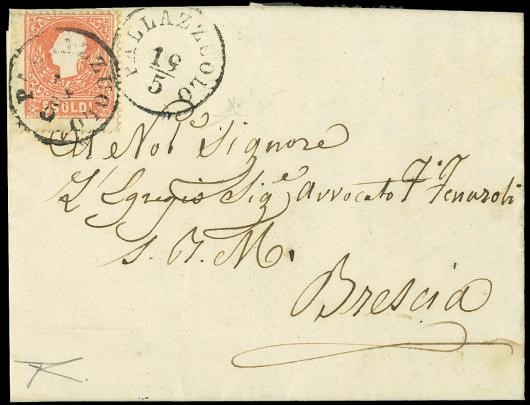 PALLAZZUOLO
19/5
SOLDI
PALLAZZUOLO
Al Nobe Signore
L'Egregio Sige Avvocato F. Fenaroli
S. P. M.
Brescia